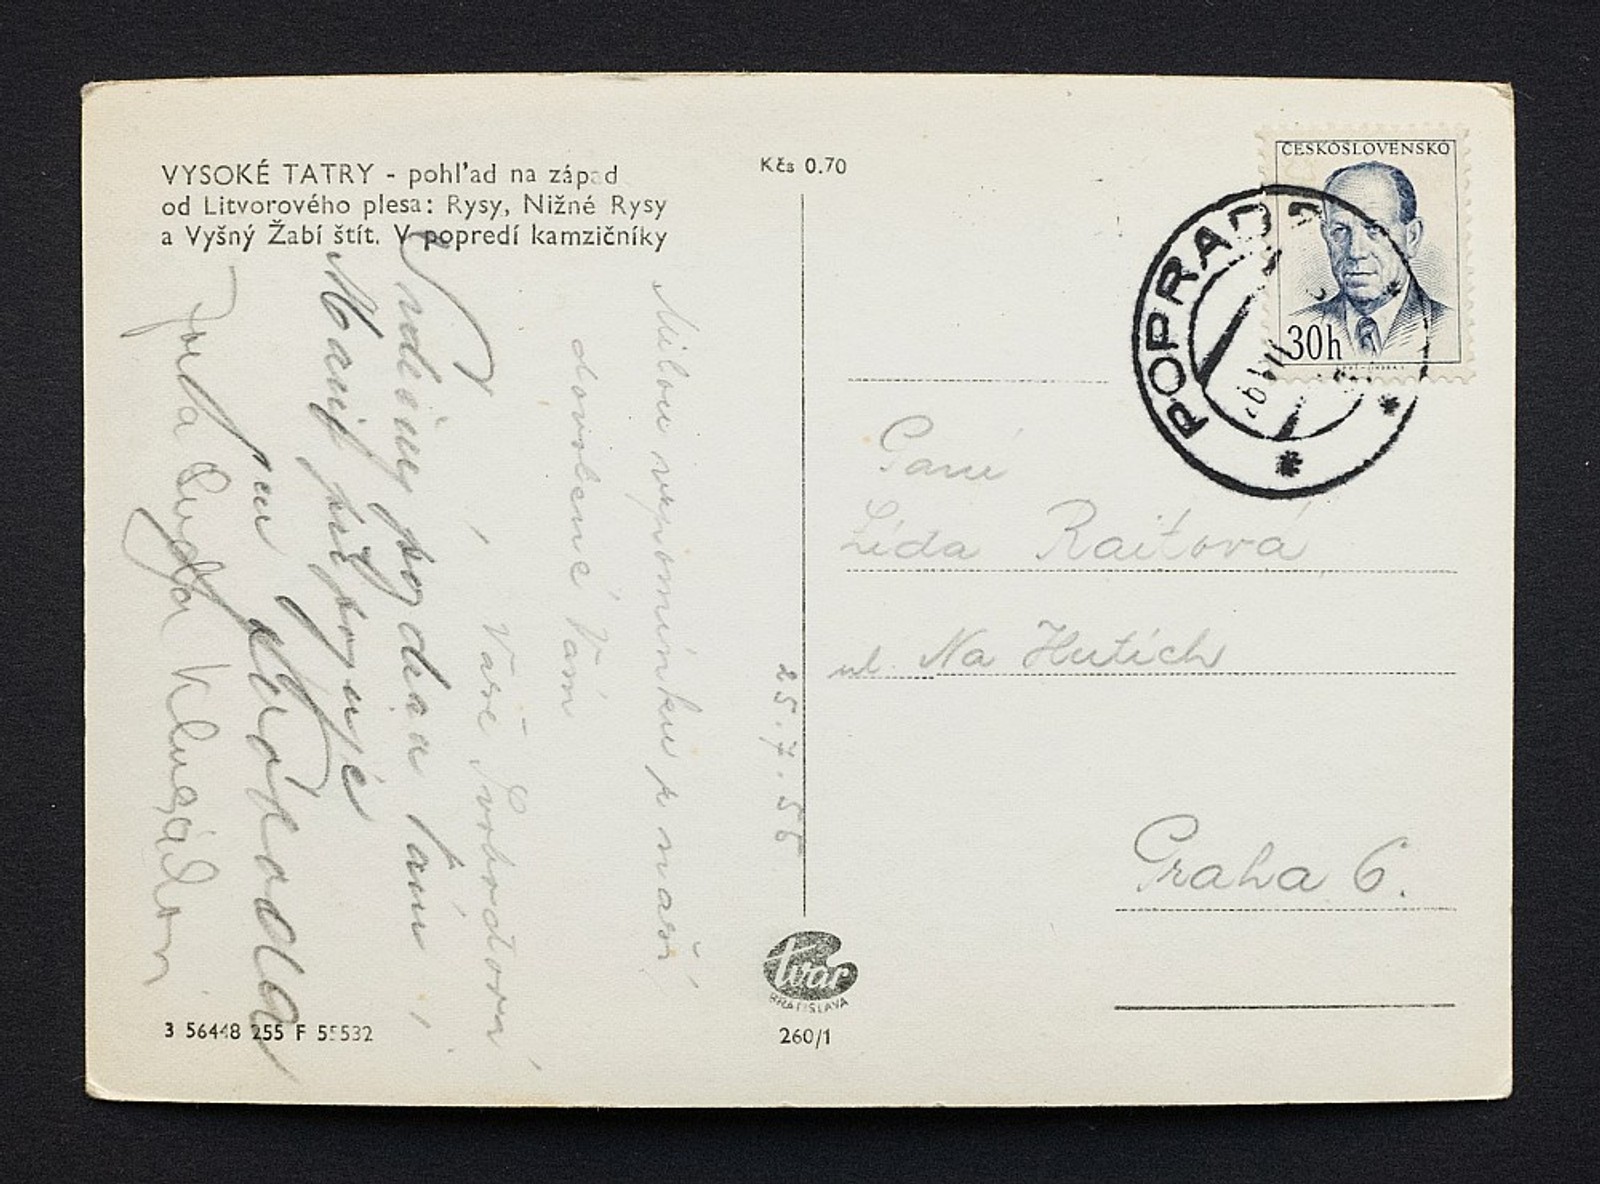 VYSOKÉ TATRY - pohľad na západ
od Litvorového plesa: Rysy, Nižné Rysy
a Vyšný Žabí štít. V popredí kamzičníky
Kčs 0.70
ČESKOSLOVENSKO
30h
POPRAD 2
Paní
Lída Raitová
ul. Na Hutích
Praha 6.
25.7.56
Milou vzpomínku z naší
dovolené Vám
Vaše Svobodovi
Srdečný pozdrav Vám
připojuje
tvar
BRATISLAVA
260/1
3 56448 255 F 55532